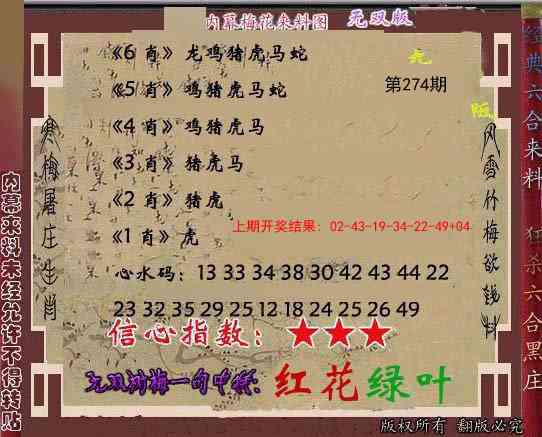 内幕梅花来料图 无双版
《6 肖》 龙鸡猪虎马蛇
《5 肖》 鸡猪虎马蛇
第274期
《4 肖》 鸡猪虎马
《3 肖》 猪虎马
《2 肖》 猪虎
上期开奖结果：02-43-19-34-22-49+04
《1 肖》 虎
心水码：13 33 34 38 30 42 43 44 22
23 32 35 29 25 12 18 24 25 26 49
信心指数：★★★
红花绿叶
版权所有 翻版必究
内幕来料未经允许不得转贴
寒梅屠庄生肖
风雪竹梅欲钱料
经典六合来料 狂杀六合黑庄